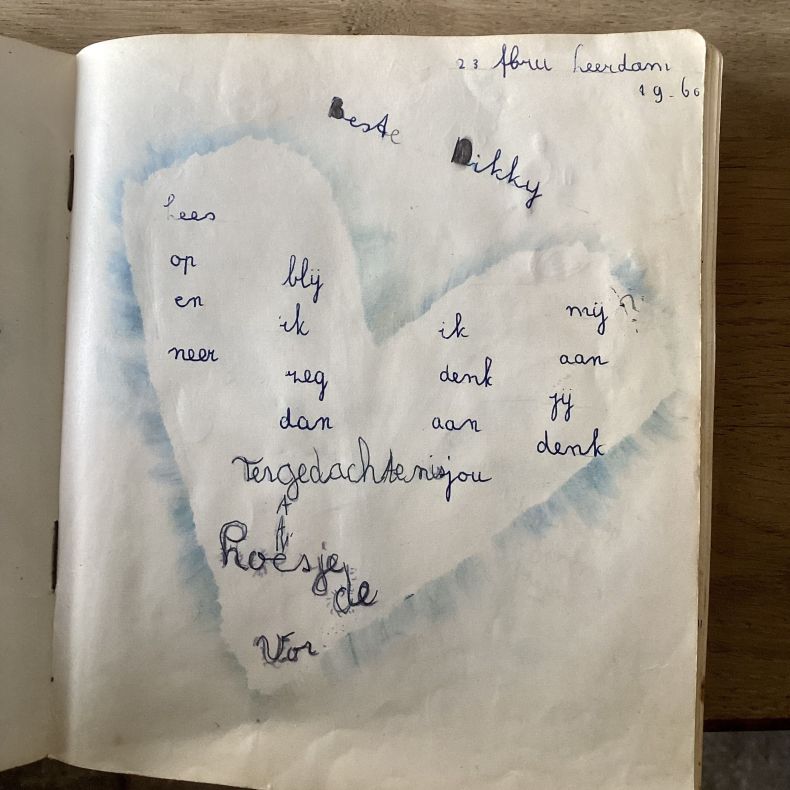 23 fbru Leerdam
19-60
Beste
Dikky
Lees
op
en
neer
blij
ik
zeg
dan
ik
denk
aan
jou
mij ?
aan
jij
denk
Tergedachtenis
AAN
Roesje
de
Vor